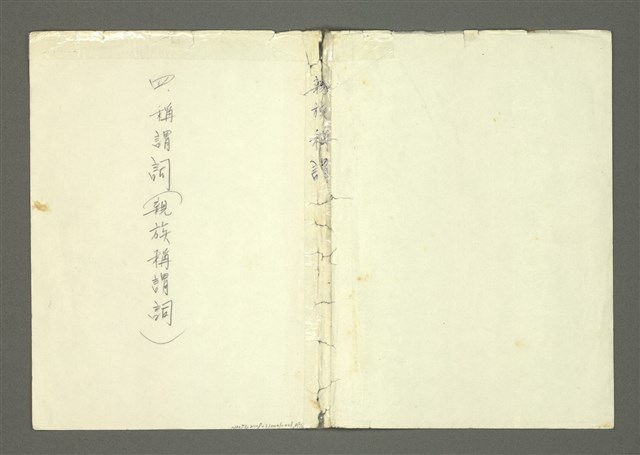 親族稱謂
四、稱謂詞（親族稱謂詞）